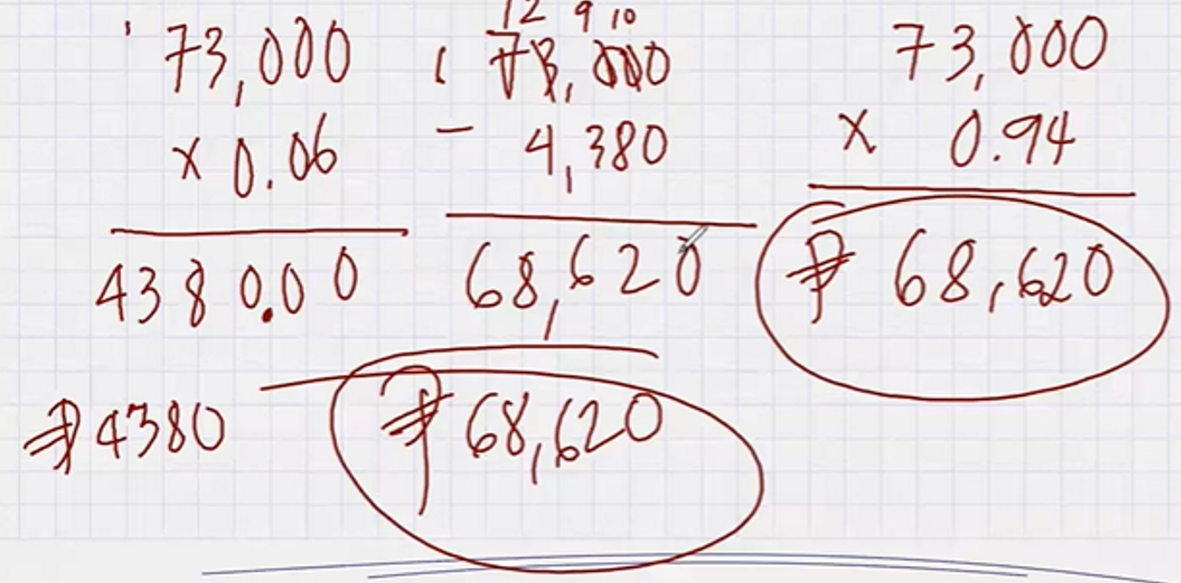 12 9 10
' 73,000 ( 73,000 73,000
x 0.06 - 4,380 x 0.94
4380.00 68,620 ₱ 68,620
₱4380 ₱ 68,620